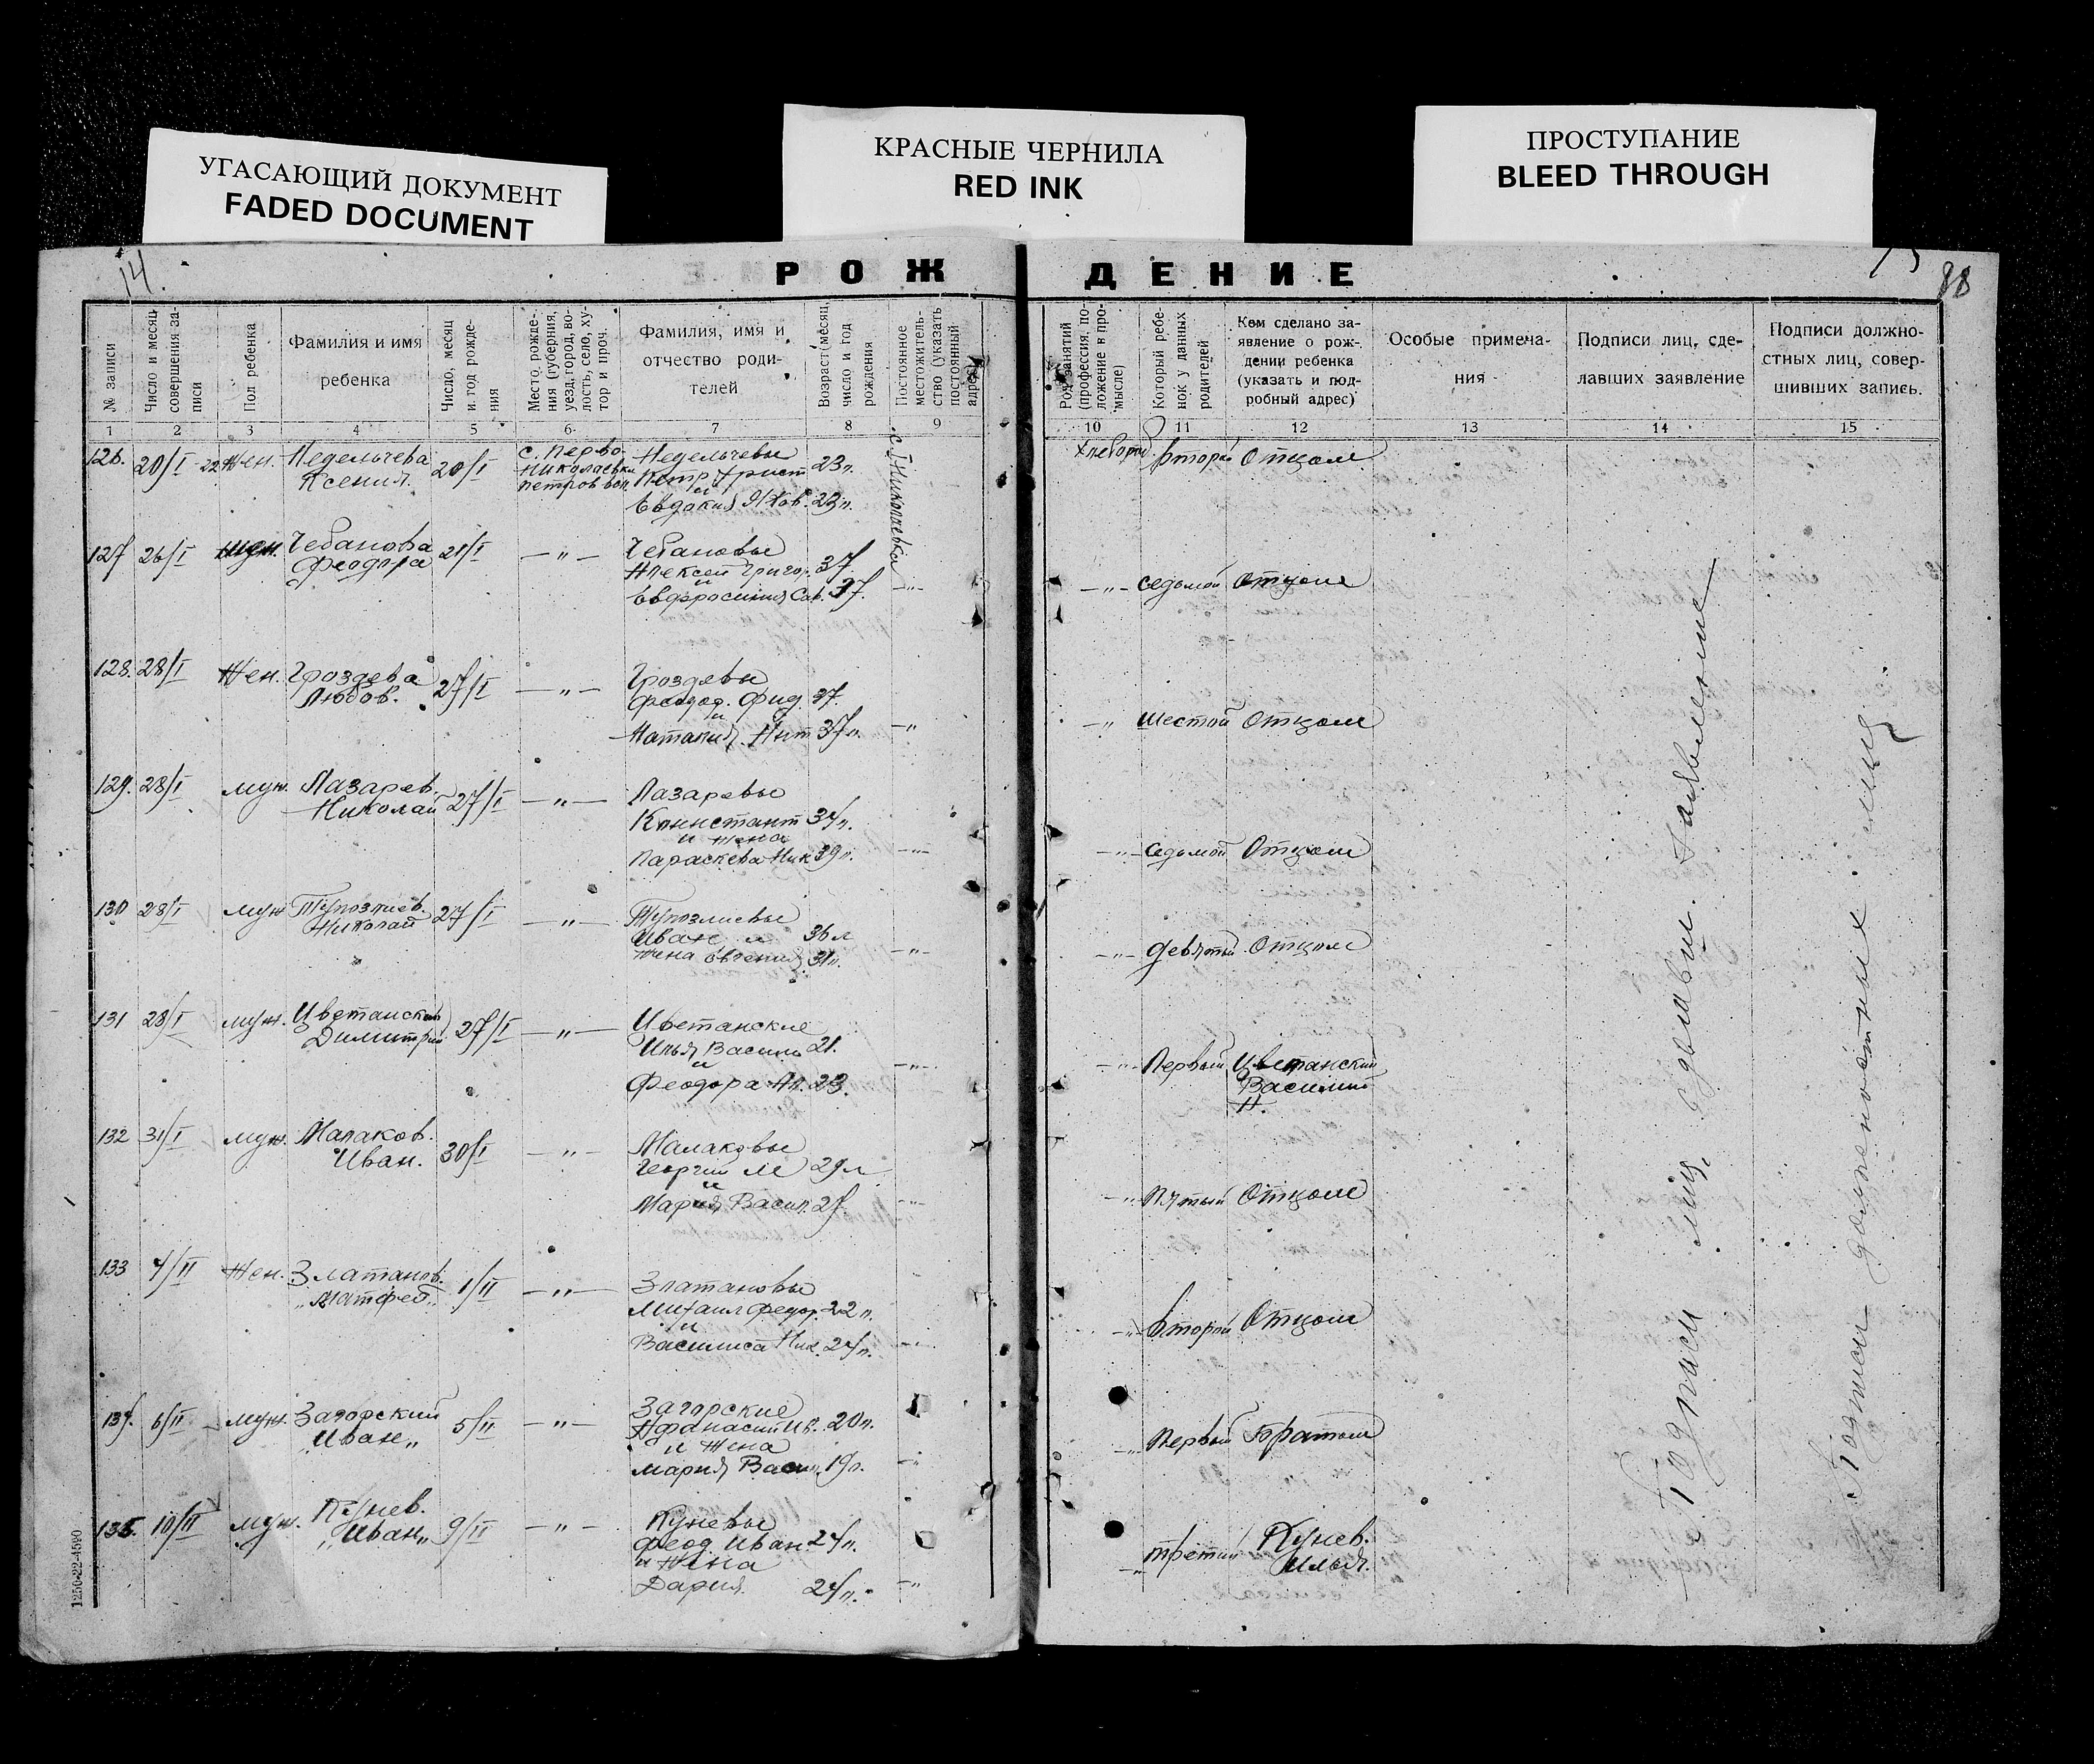 УГАСАЮЩИЙ ДОКУМЕНТ
FADED DOCUMENT
КРАСНЫЕ ЧЕРНИЛА
RED INK
ПРОСТУПАНИЕ
BLEED THROUGH
14.
88
РОЖ
ДЕНИЕ
№ записи
Число и месяц
совершения за-
писи
Пол ребенка
Фамилия и имя
ребенка
Число, месяц
и год рожде-
ния
Место рожде-
ния (губерния,
уезд, город, во-
лость, село, ху-
тор и проч.
Фамилия, имя и
отчество роди-
телей
Возраст (месяц,
число и год
рождения
Постоянное
местожитель-
ство (указать
постоянный
адрес)
Род занятий
(профессия, по-
ложение в про-
мысле)
Который ребе-
нок у данных
родителей
Кем сделано за-
явление о рож-
дении ребенка
(указать и под-
робный адрес)
Особые примеча-
ния
Подписи лиц, сде-
лавших заявление
Подписи должно-
стных лиц, совер-
шивших запись.
1 2 3 4 5 6 7 8 9 10 11 12 13 14 15
126. 20/I 22 Жен. Недельчева 20/I с. Перво Недельчевы 23л. второй Отцом
Ксения. Николаевка Петр Христ
Петров вол. и
Евдокия Яков. 23л.
с. Николаевка
127 26/I жен. Чебанова 21/I —"— Чебановы
Феодора Алексей Григор. 37
и
Евфросиния Сав. 37. —"— —"— седьмой отцом
128. 28/I Жен. Гроздева 27/I —"— Гроздевы
Любов. Феодод. Фид. 37.
и
Наталия Ант 37л. —" —" шестой отцом
129. 28/I муж. Лазарев. 27/I —"— Лазаревы
Николай Констант 34л.
и жена
Параскева Ник 39л. —"— —"— седьмой Отцом
130 28/I муж 27/I —"—
Николай Иван и 36л
жена Евгения 31л. —"— —"— девятый Отцом
131 28/I муж. Цветанский 27/I —"— Цветанские
Димитрий Илья Василь 21.
и
Феодора Ап. 23. —"— —"— Первый Цветанский
Василий
Н.
132 31/I муж. Малаков. 30/I —"— Малаковы
Иван. Георгий М 29л
и
Мария Васил. 27. —"— —"— Пятый Отцом
133 4/II Жен. Златанов. 1/II —"— Златановы
„Матфей„ Михаил Федор. 22л.
и
Василиса Ник. 24л. —"— —"— второй Отцом
134. 6/II муж. Загорский 5/II —"— Загорские
„Иван„ Афанасий Ив. 20л.
и жена
Мария Васил. 19л. —" —" Первый братом
135. 10/II муж. Кунев. 9/II —"— Куневы
„Иван„ Феод. Иван 24л.
и жена
Дария. 24л. —" —" третий Кунев.
Илья.
Подписи лиц, сделавш. заявление
Подписи должностных лиц
1250-22-4590